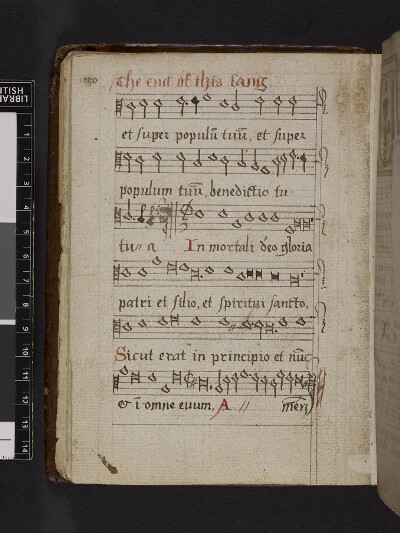 The end of this sang
et super populū tuū, et super
populum tuū, benedictio tu
tu〃a In mortali deo gloria
patri et filio, et spiritui sancto.
Sicut erat in principio et nūc
& ī omne evum, A 〃 men
1
2
3
4
5
6
7
8
9
10
11
12
13
14